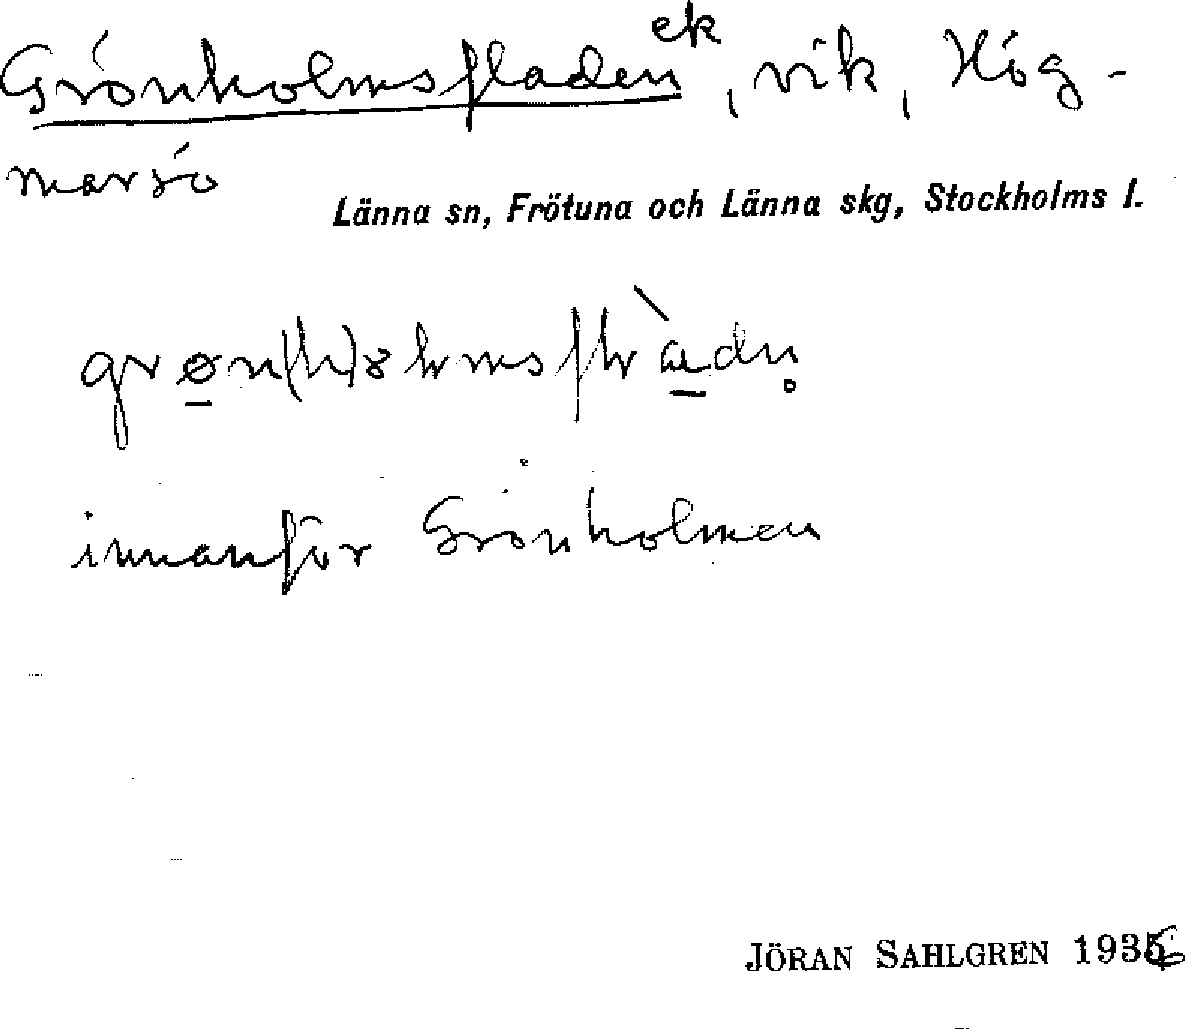 Grönholmsfladen ek, vik, Hög-
marsö
Länna sn, Frötuna och Länna skg, Stockholms l.
innanför Grönholmen
JÖRAN SAHLGREN 1936